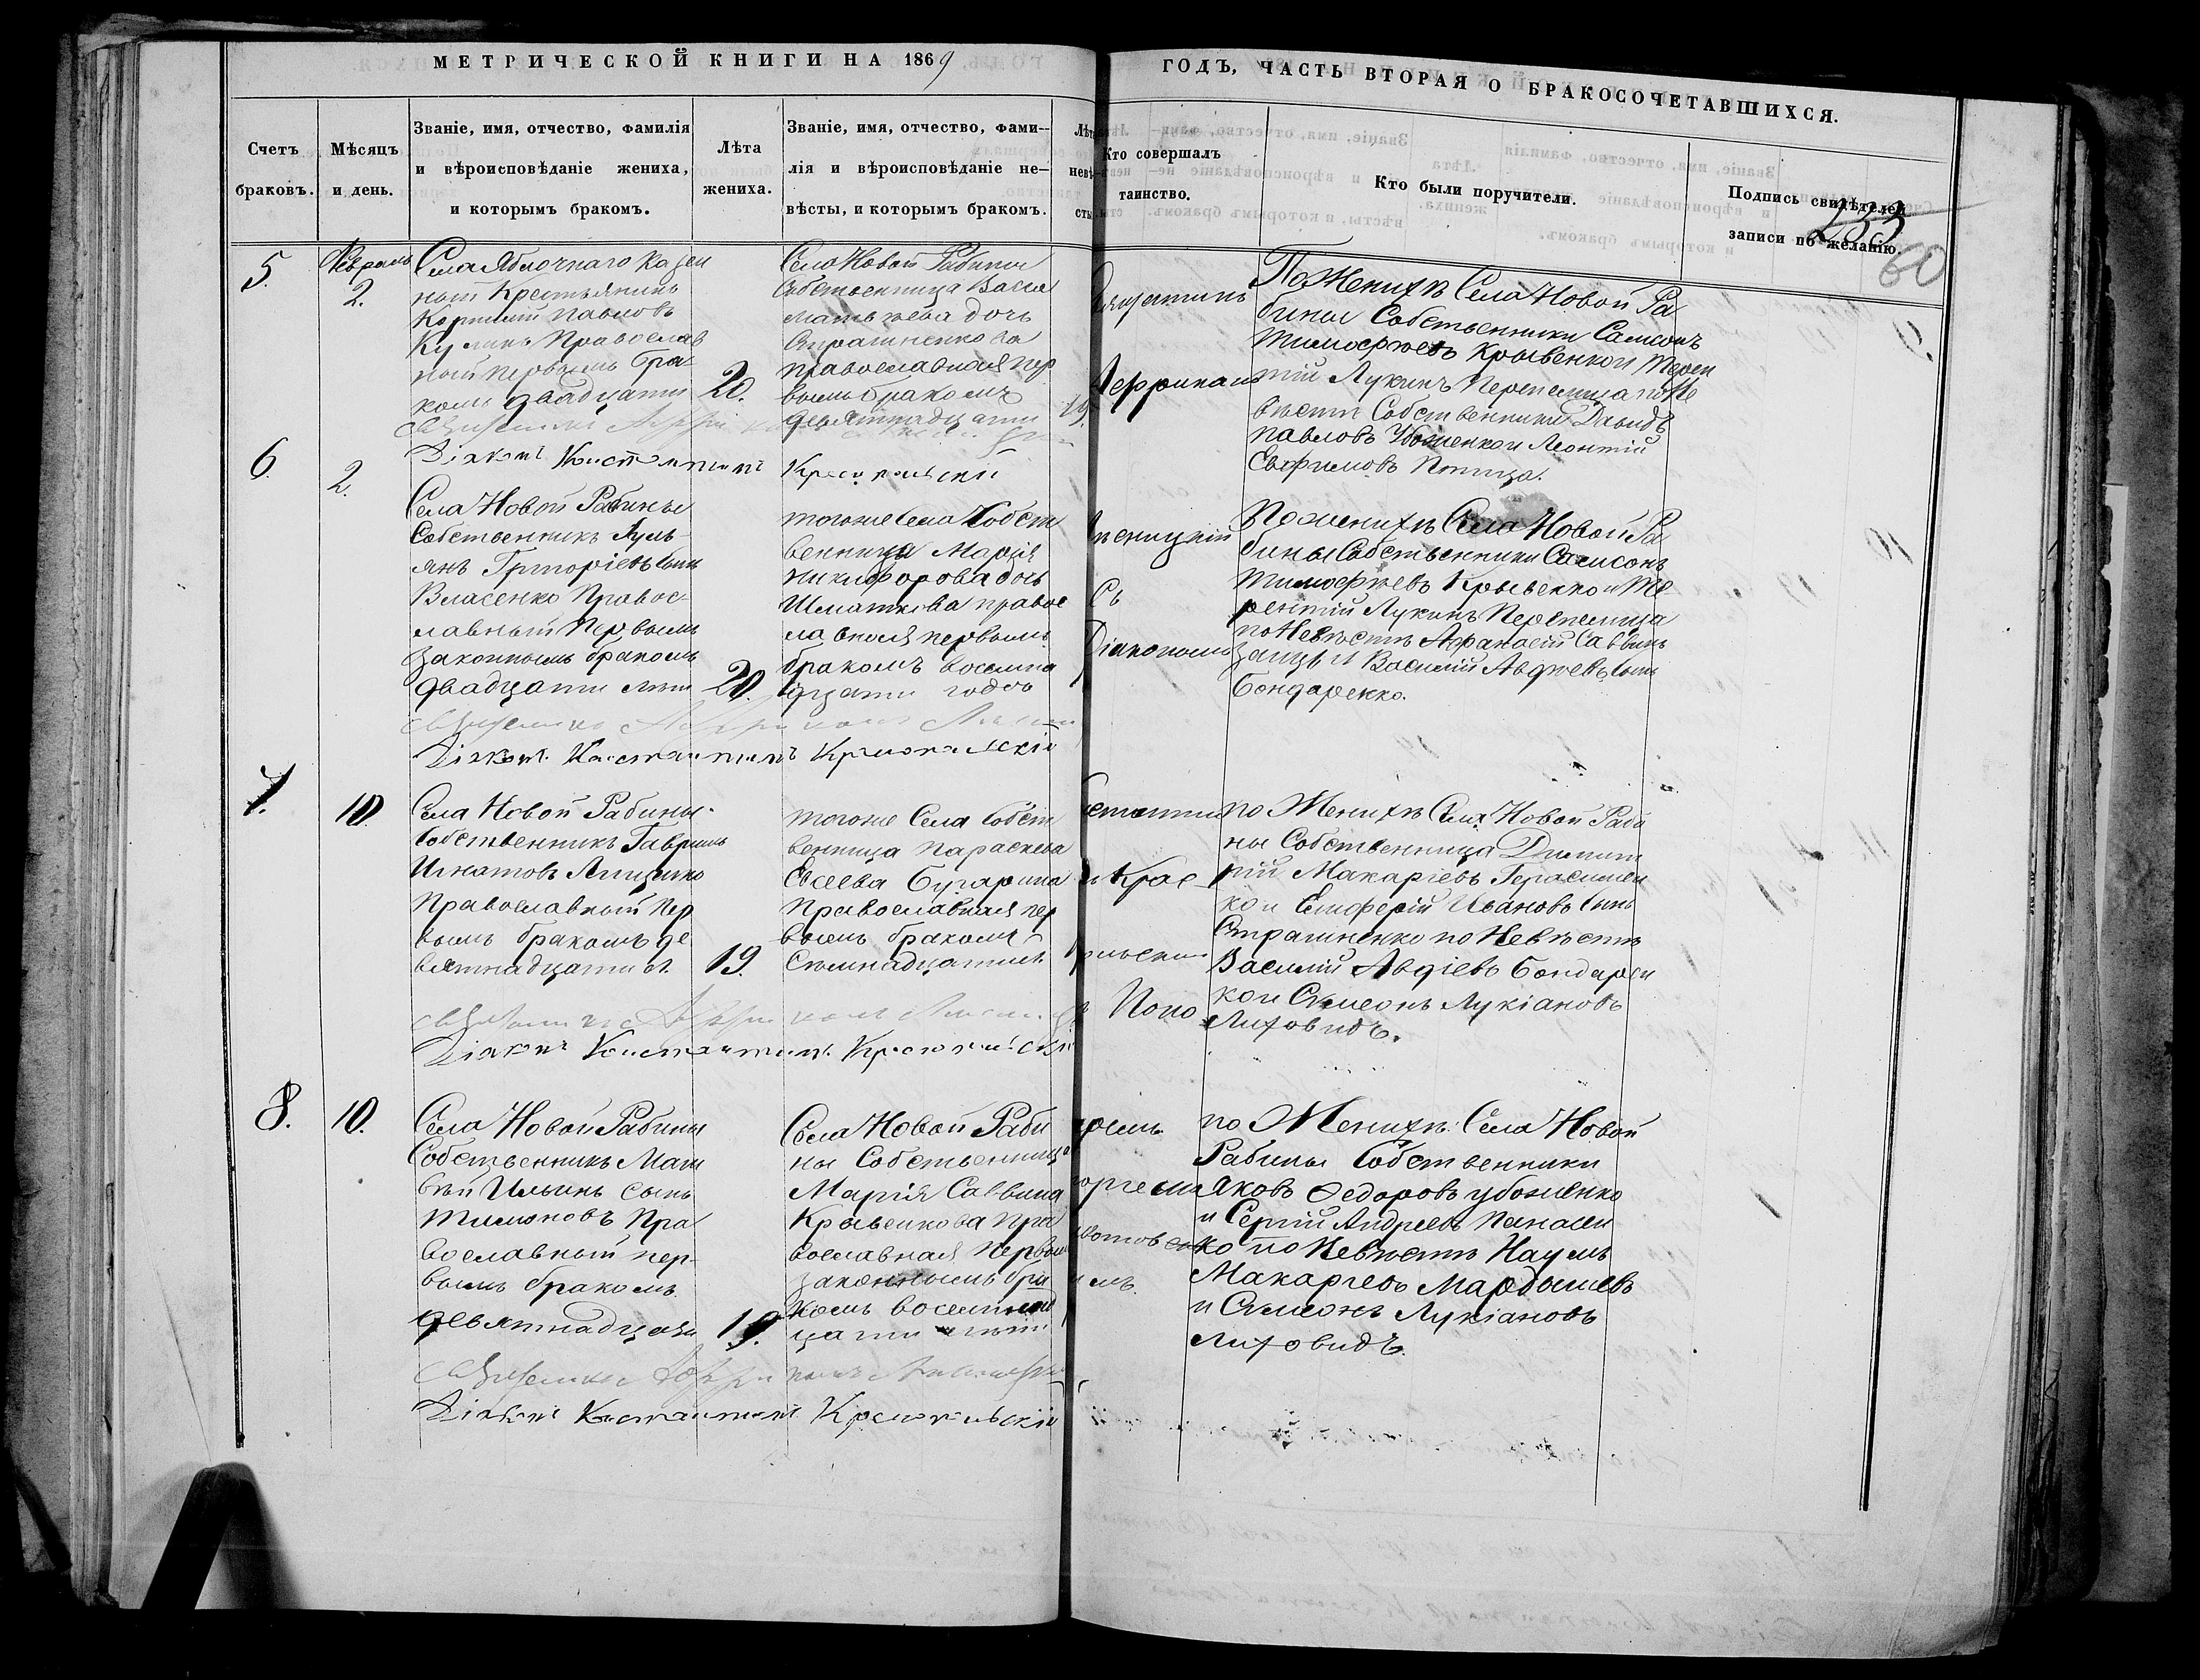 МЕТРИЧЕСКОЙ КНИГИ НА 1869
ГОДЪ, ЧАСТЬ ВТОРАЯ О БРАКОСОЧЕТАВШИХСЯ.
Счетъ
браковъ.
Мѣсяцъ
и день.
Званіе, имя, отчество, фамилія
и вѣроисповѣданіе жениха,
и которымъ бракомъ.
Лѣта
жениха.
Званіе, имя, отчество, фами-
лія и вѣроисповѣданіе не-
вѣсты, и которымъ бракомъ.
Лѣт
невѣ
сты
Кто совершалъ
таинство.
Кто были поручители.
Подпись свидѣтелей
записи по желанію.
60
5.
Февраль
2.
Села Яблочнаго Казен
ный Крестьянинъ
Корнилий Павловъ
Православ
ный первымъ бра-
комъ двадцати
20.
Село Новой Рабины
Собственница Васса
Матвѣева дочь
Страшненкова
православная пер
вымъ бракомъ
девятнадцати
19.
По Женихѣ Села Новой Ра
бины Собственники Самсонъ
Тимофѣевъ Крывенко и Терен
тій Лукинъ Перепелица по Не
вѣстѣ Собственники Давидъ
Павловъ Убоженко и Леонтій
Евфимовъ Птица.
Діаконъ Константинъ Краснопольскій
6.
2.
Села Новой Рабины
Собственникъ Луль-
янъ Григоріевъ сынъ
Власенко Правос-
лавный Первымъ
Законнымъ бракомъ
двадцати лѣтъ
20.
тогоже Села Собст
венница Марія
Никифорова дочь
Шматкова правос
лавная первымъ
бракомъ восемна
дцати годовъ
Съ
Діакономъ
По женихѣ Села Новой Ра
бины Собственники Самсонъ
Тимофѣевъ Крывенко и Те
рентій Лукинъ Перепелица
по Невѣстѣ Афанасій Саввинъ
Заицъ и Василій Авдѣевъ сынъ
Бондаренко.
Діаконъ Константинъ Краснопольскій
7.
10.
Села Новой Рабины
Собственникъ Гавриилъ
Игнатовъ
Православный Пер
вымъ бракомъ де
вятнадцати л.
19.
тогоже Села Собст
венница Параскева
Евсеева Бугарина
Православная пер
вымъ бракомъ
Семнадцати
по Женихѣ Села Новой Раби
ны Собственница Димит
рій Макаріевъ Герасимен
ко и Елиферій Ивановъ сынъ
Страшненко по Невѣстѣ
Василій Авдіевъ Бондарен
ко и Сѵмеонъ Лукіановъ
Лиховидъ.
Діаконъ Константинъ Краснопольскій
8.
10.
Села Новой Рабины
Собственникъ Мат
вѣй Ильинъ сынъ
Тимоновъ Пра
вославный пер-
вымъ бракомъ
девятнадцати
19.
Села Новой Раби
ны Собственница
Марія Саввина
Крывенкова Пра
вославная Первымъ
законнымъ бра
комъ восемнад
цати лѣтъ
по Женихѣ Села Новой
Рабины Собственники
Яковъ Федоровъ Убоженко
и Сергій Андреевъ Панасен
ко по Невѣстѣ Наумъ
Макаріевъ Мардышевъ
и Сѵмеонъ Лукіановъ
Лиховидъ.
Діаконъ Константинъ Краснопольскій